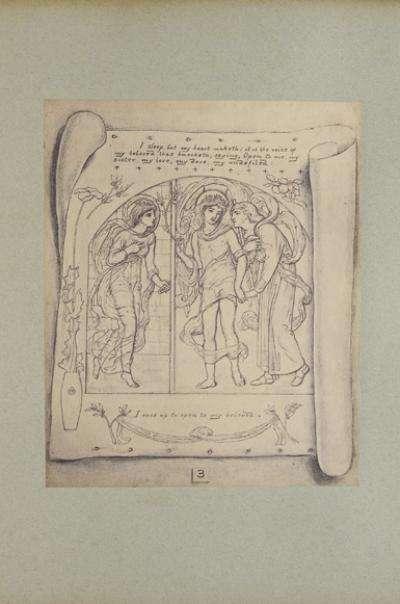 I sleep, but my heart waketh; it is the voice of
my beloved that knocketh, saying, Open to me, my
sister, my love, my dove, my undefiled.
I rose up to open to my beloved.
3